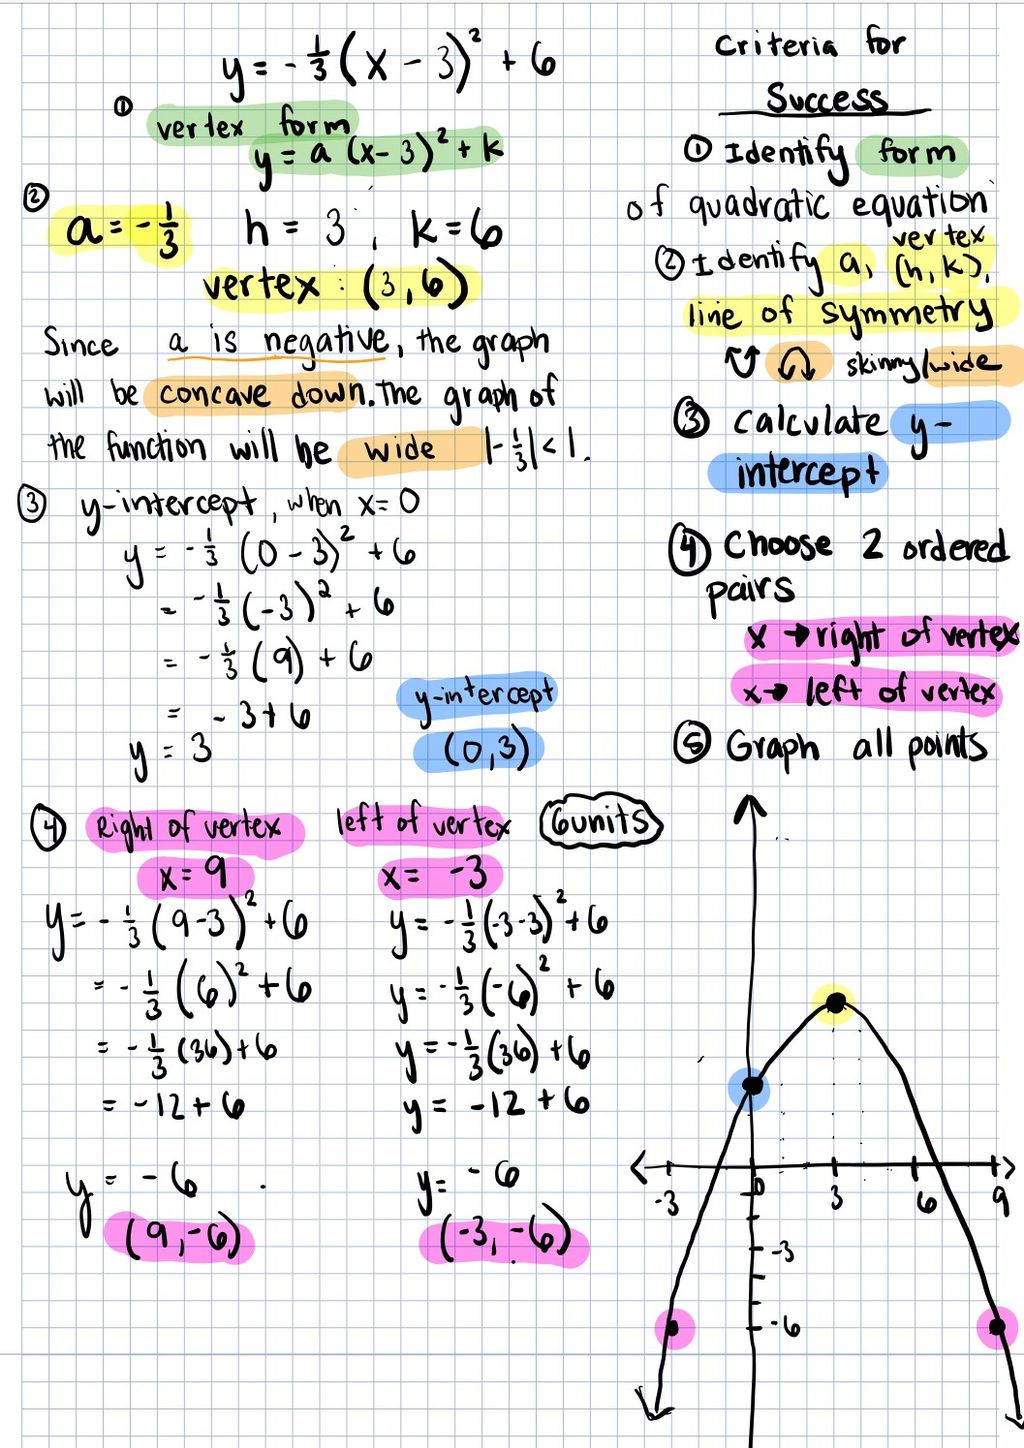 y = -1/3 (x - 3)² + 6
① vertex form
y = a (x - 3)² + k
② a = -1/3 h = 3, k = 6
vertex : (3, 6)
Since a is negative, the graph
will be concave down. The graph of
the function will be wide |-1/3| < 1.
③ y-intercept, when x = 0
y = -1/3 (0 - 3)² + 6
= -1/3 (-3)² + 6
= -1/3 (9) + 6
= -3 + 6
y = 3
y-intercept
(0,3)
Criteria for
Success
① Identify form
of quadratic equation
② Identify a, vertex (h, k),
line of symmetry
skinny/wide
③ Calculate y-
intercept
④ Choose 2 ordered
pairs
x → right of vertex
x → left of vertex
⑤ Graph all points
④ Right of vertex
x = 9
y = -1/3 (9-3)² + 6
= -1/3 (6)² + 6
= -1/3 (36) + 6
= -12 + 6
y = -6
(9, -6)
left of vertex
x = -3
y = -1/3 (-3-3)² + 6
y = -1/3 (-6)² + 6
y = -1/3 (36) + 6
y = -12 + 6
y = -6
(-3, -6)
6units
-3 0 3 6 9
-3
-6